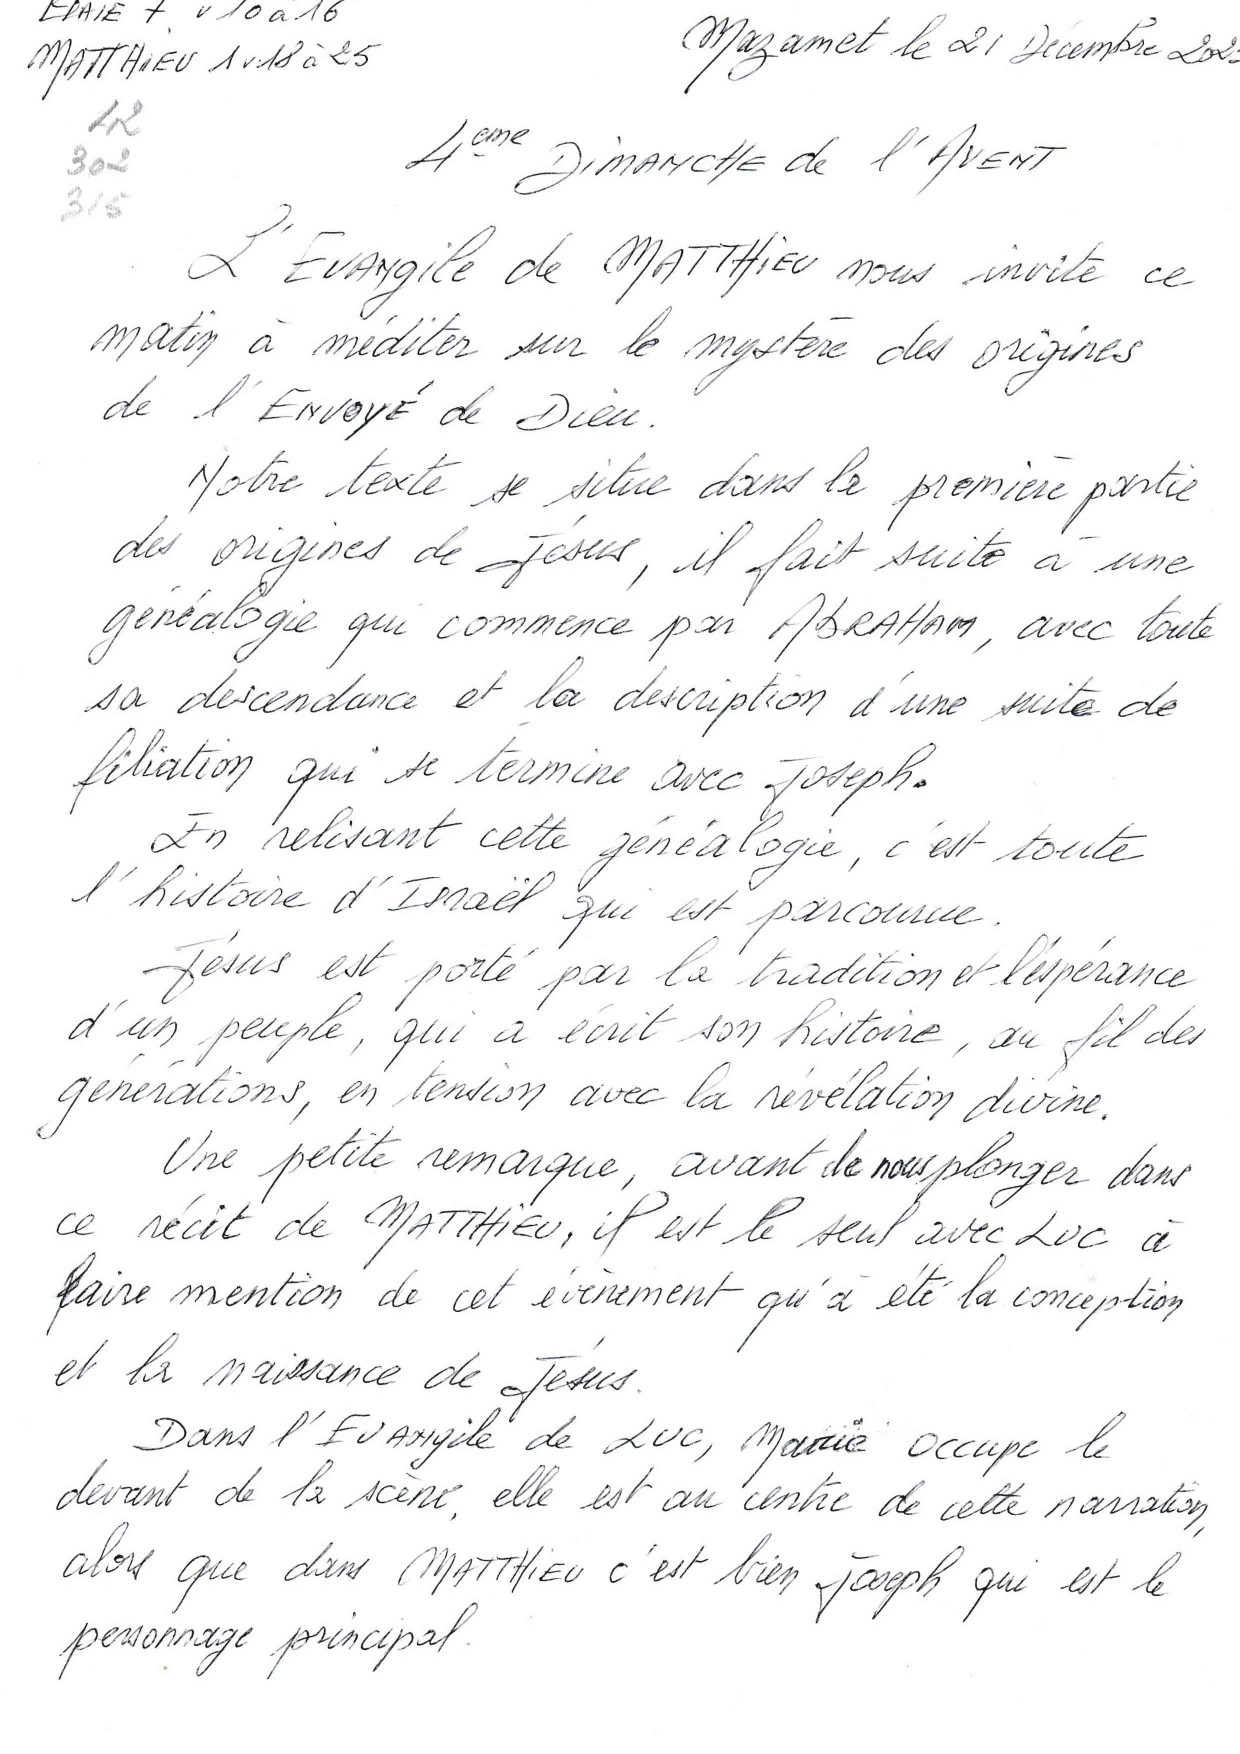 ESAIE 7 v 10 à 16
MATTHIEU 1 v.18 à 25
Mazamet le 21 Décembre 202
302
315
4ème DIMANCHE de l'AVENT
L'EVANgile de MATTHIEU nous invite ce
matin à méditer sur le mystère des origines
de l'ENVOYÉ de Dieu.
Notre texte se situe dans la première partie
des origines de Jésus, il fait suite à une
généalogie qui commence par ABRAHAM, avec toute
sa descendance et la description d'une suite de
filiation qui se termine avec Joseph.
En relisant cette généalogie, c'est toute
l'histoire d'Israël qui est parcourue.
Jésus est porté par la tradition et l'espérance
d'un peuple, qui a écrit son histoire, au fil des
générations, en tension avec la révélation divine.
Une petite remarque, avant de nous plonger dans
ce récit de MATTHIEU, il est le seul avec LUC à
faire mention de cet évènement qu'à été la conception
et la naissance de Jésus.
Dans l'EVANgile de LUC, Marie occupe le
devant de la scène, elle est au centre de cette narration,
alors que dans MATTHIEU c'est bien Joseph qui est le
personnage principal.